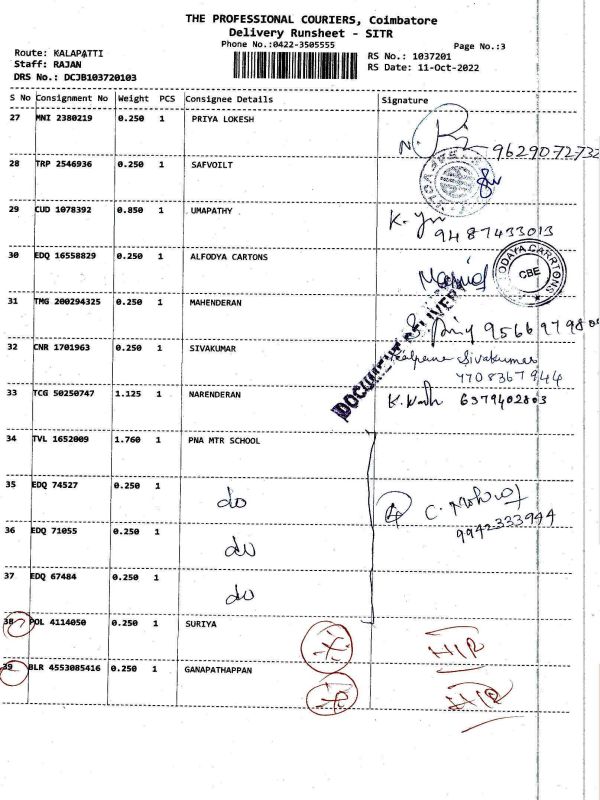 THE PROFESSIONAL COURIERS, Coimbatore
Delivery Runsheet - SITR
Phone No.:0422-3505555
Page No.:3
Route: KALAPATTI
Staff: RAJAN
DRS No.: DCJB103720103
RS No.: 1037201
RS Date: 11-Oct-2022
S No Consignment No Weight PCS Consignee Details Signature
27 MNI 2380219 0.250 1 PRIYA LOKESH
9629072732
28 TRP 2546936 0.250 1 SAFVOILT
29 CUD 1078392 0.850 1 UMAPATHY
9487433013
30 EDQ 16558829 0.250 1 ALFODYA CARTONS
ODAYA CARRTONS
CBE
31 TMG 200294325 0.250 1 MAHENDERAN
32 CNR 1701963 0.250 1 SIVAKUMAR
Sivakumar
7708367944
DOCUMENT DELIVERY
33 TCG 50250747 1.125 1 NARENDERAN
6379402803
34 TVL 1652009 1.760 1 PNA MTR SCHOOL
35 EDQ 74527 0.250 1 do
9942333944
36 EDQ 71055 0.250 1 do
37 EDQ 67484 0.250 1 do
38 POL 4114050 0.250 1 SURIYA HIR
39 BLR 4553085416 0.250 1 GANAPATHAPPAN HIR